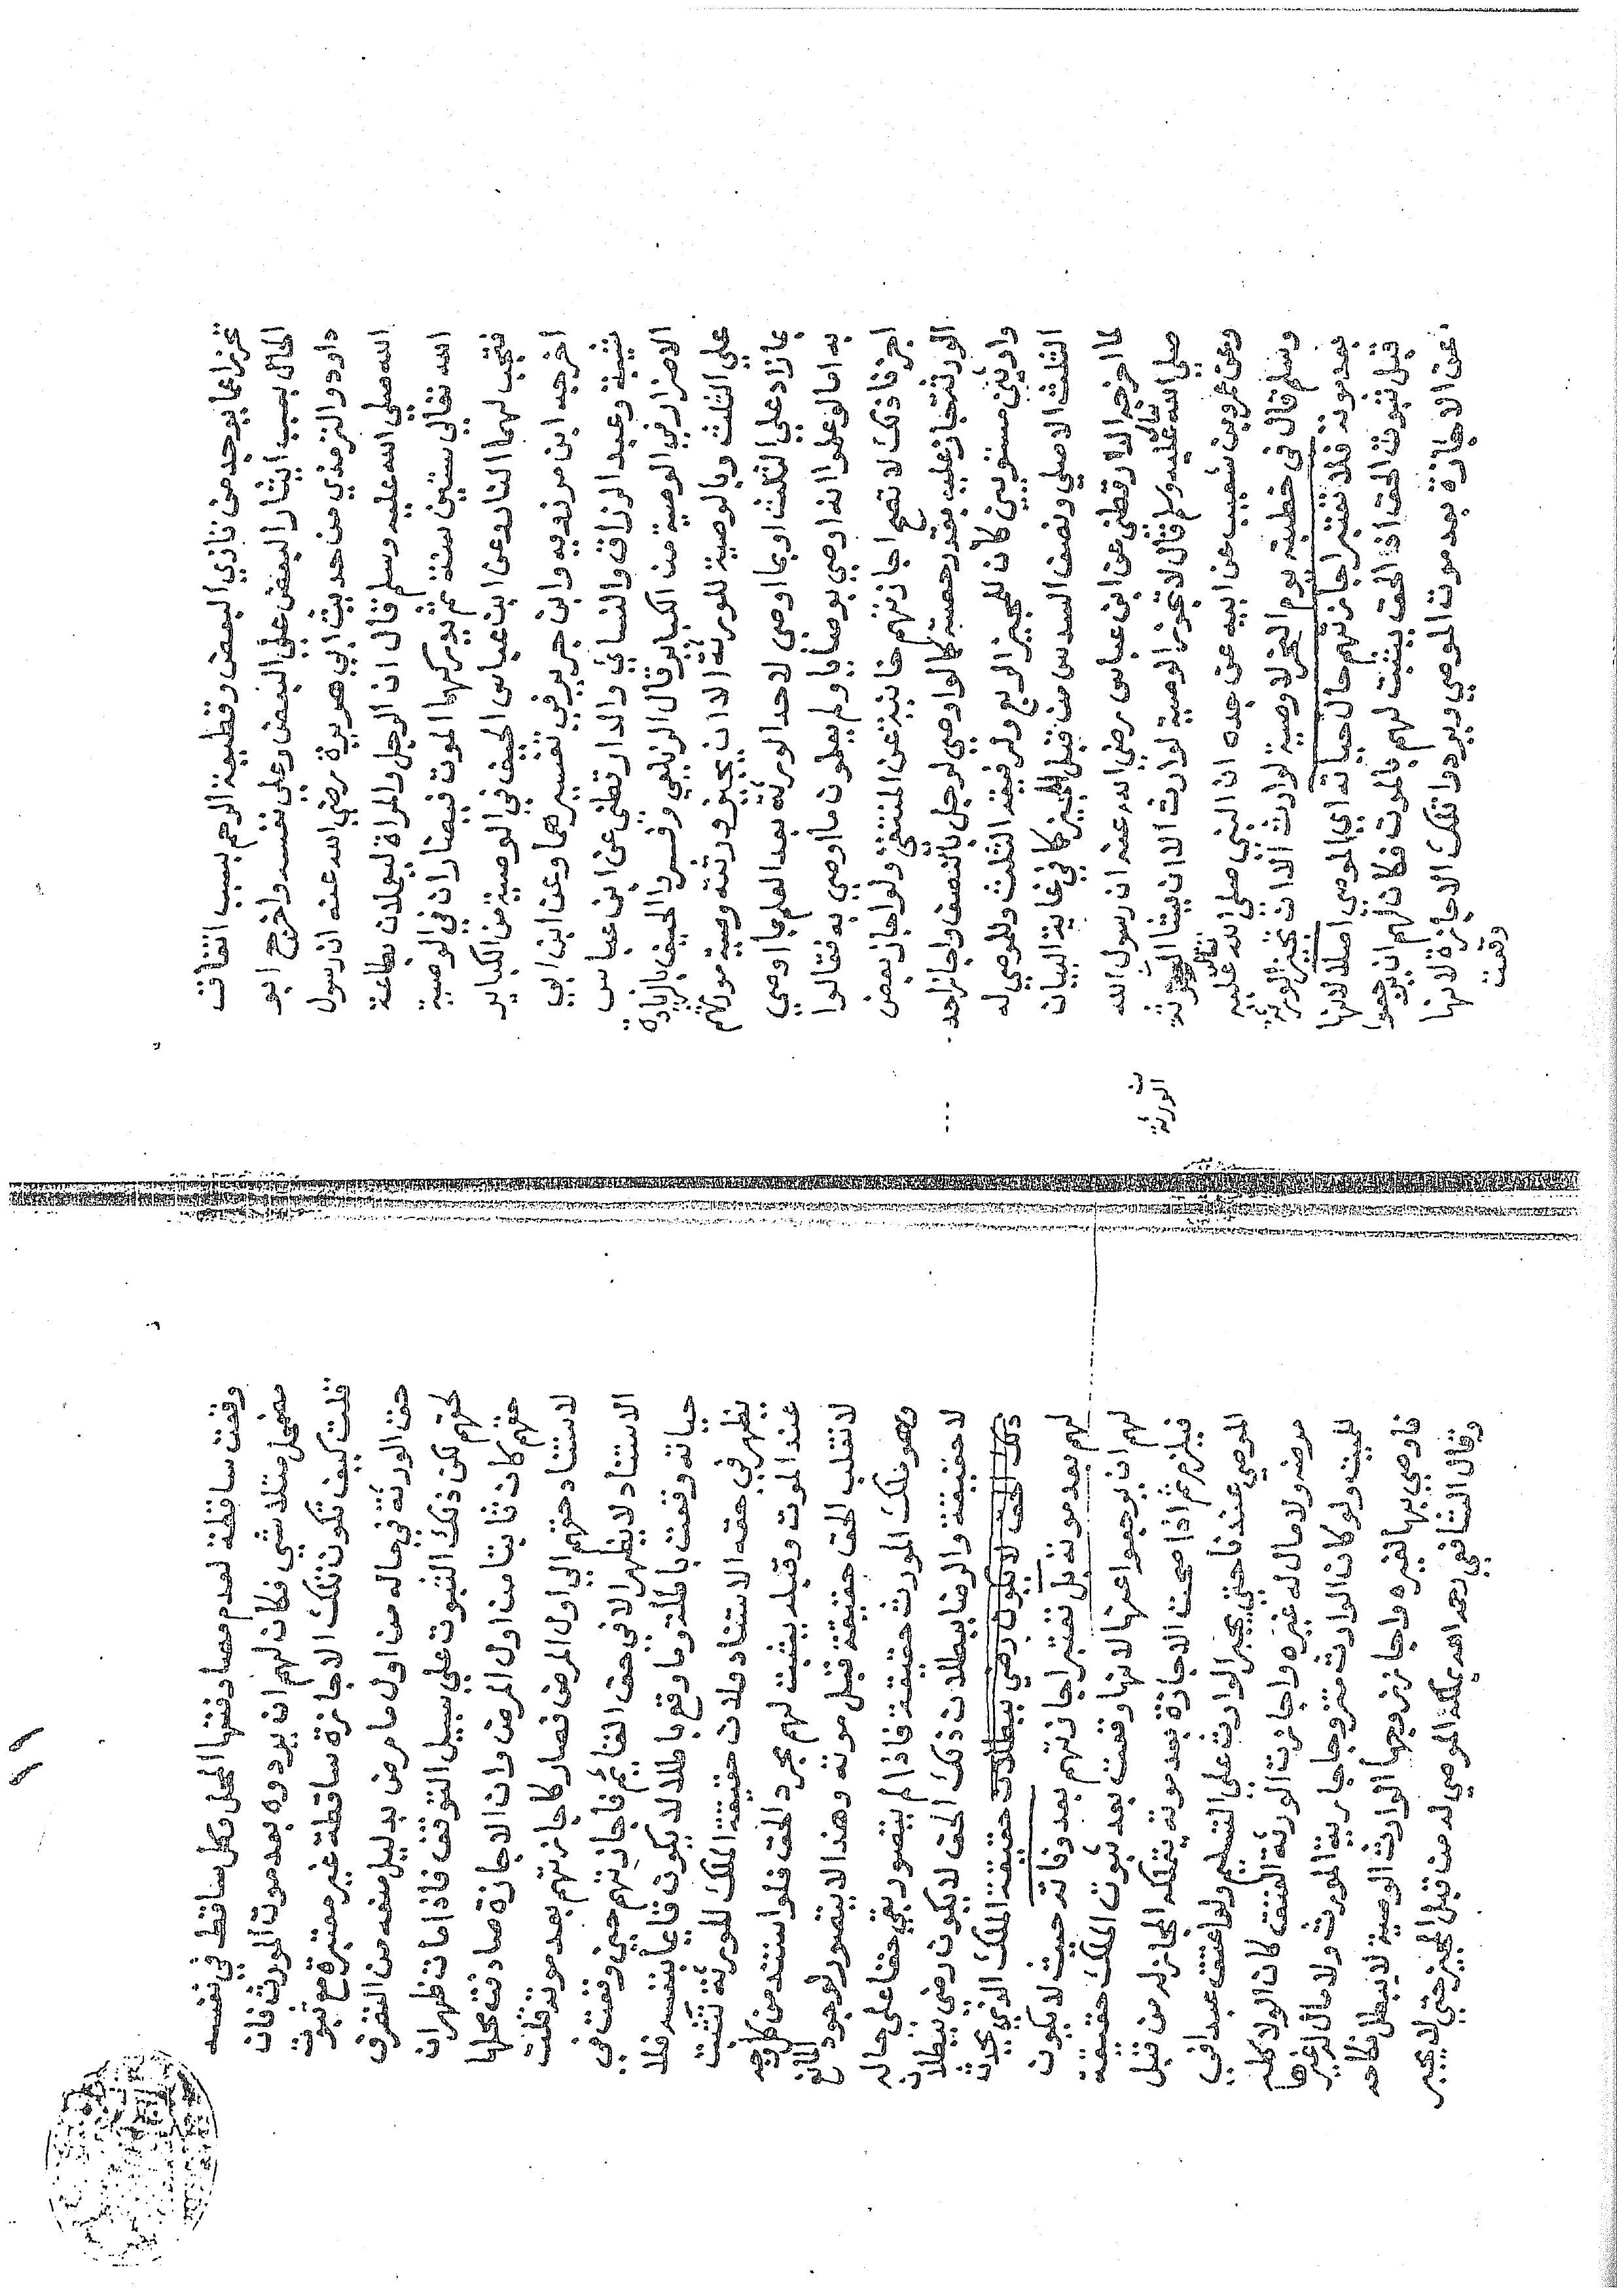 تحرزا عما يوجد من تاذي البعض وقطيعة الرحم بسبب اتفاق
الحال بسبب ايثار البعض على البعض وعلى نفسه واخرج ابو
داود والترمذي من حديث ابي هريرة رضي الله عنه ان رسول
الله صلى الله عليه وسلم قال ان الرجل والمراة ليعملان بطاعة
الله تعالى ستين سنة ثم يدركهما الموت فيضاران في الوصية
فتجب لهما النار وعن ابن عباس الحيف في الوصية من الكباير
اخرجه ابن مردويه وابن جرير في تفسيرهما وعن ابن ابي
شيبة وعبد الرزاق والنسائي والدارقطني عن ابن عباس
الاضرار في الوصية من الكباير قال الزيلعي وفسروا الحيف بالزيادة
على الثلث وبالوصية للورثة الا ان يجيز ورثته وصية مورثهم
بما زاد على الثلث او بما اوصى لاحد الورثة بعد العلم بما اوصي
به اما لو علموا انه اوصي بوصايا ولم يعلموا ما اوصي به فقالوا
اجزنا ذلك لا تصح اجازتهم خانية عن المنتقي ولو اجاز بعض
الورثة جاز عليه بقدر حصته كما لو اوصي لرجل بالنصف واجاز احد
وارثين مستويين كان للمجيز الربع ولرفيقه الثلث وللموصي له
الثلث الاصلي ونصف السدس من قبل المجيز كما في غاية البيان
لما اخرجه الدارقطني عن ابن عباس رضي الله عنه ان رسول الله
صلى الله تعالى عليه وسلم قال لا تجوز الوصية لوارث الا ان يشا الورثة
الورثة
وعن عمرو بن شعيب عن ابيه عن جده ان النبي صلى الله تعالى عليه
وسلم قال في خطبته يوم النحر لا وصية لوارث الا ان تجيز الورثة
بعد موته فلا تعتبر اجازتهم حال حياته اي الموصي اصلا لانها
قبل ثبوت الحق اذ الحق يثبت لهم بالموت فكان لهم ان يرجعوا
عن الاجازة بعد موت الموصي ويردوا تلك الاجازة لانها
وقعت
وقعت ساقطة لعدم مصادفتها المحل وكل ساقط في نفسه
مضمحل متلاشي فكان لهم ان يردوه بعد موت المورث فان
قلت كيف تكون تلك الاجازة ساقطة غير معتبرة مع ثبوت
حق الورثة في ماله من اول ما مرض بدليل منعه من التصرف
لحقهم لكن ذلك الثبوت على سبيل التوقف فاذا مات ظهر ان
حقهم كان ثابتا من اول المرض وان الاجازة صادفته محلها
لاستناد حقهم الى اول المرض فصار كاجازتهم بعد موته قلت
الاستناد لا يظهر الا في حق القايم فاجازتهم حين وقعت في
حياته وقعت باطلة وما وقع باطلا لا يكون قايما بنفسه فلا
يظهر في حقه الاستناد ولان حقيقة الملك للورثة تثبت
عند الموت وقبله يثبت لهم مجرد الحق فلو استند من كل وجه
لانقلب الحق حقيقة قبل موته وهذا لا يتصور لوجود المانع
وهو ملك المورث حقيقة فاذا لم يتصور بقي حقا على حاله
لا حقيقة والرضا ببطلان ذلك الحق لا يكون رضي ببطلان
ذلك الحق لا يكون رضي ببطلان حقيقة الملك الذي يحدث
لهم بعد موته بل تعتبر اجازتهم بعد وفاته حيث لا يكون
لهم ان يرجعوا عنها لانها وقعت بعد ثبوت الملك حقيقة
فيلزم ثم اذا صحت الاجازة بعد موته يتملكه المجاز له من قبل
الموصي عندنا حتى يجبر الوارث على التسليم ولو اعتق عبدا في
مرضه ولا مال له غيره واجازت الورثة العتق كان الولا كله
للميت ولو كان الوارث متزوجا جارية المورث ولا مال له غيرها
فاوصي بها لغيره واجاز زوجها الوارث الوصية لا يبطل نكاحه
وقال الشافعي رحمه الله يملكه الموصي له من قبل المجيز حتى لا يجبر